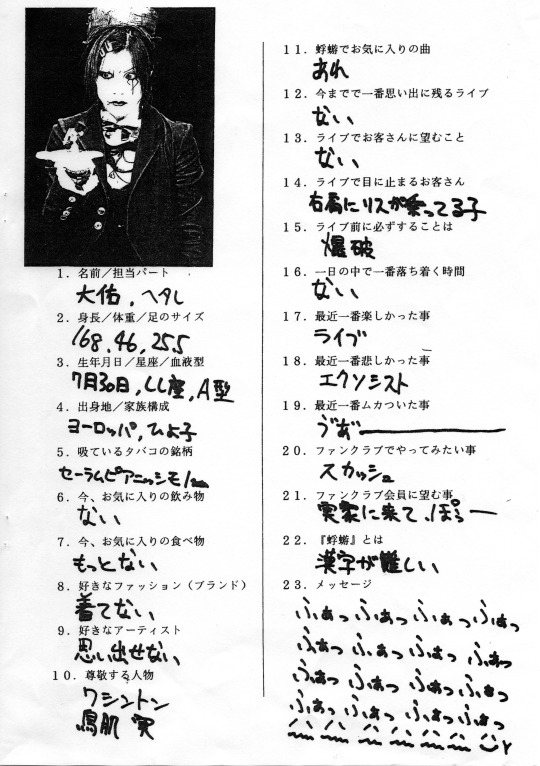 1．名前／担当パート
大佑，ヘタレ
2．身長／体重／足のサイズ
168，46，25.5
3．生年月日／星座／血液型
7月30日，しし座，A型
4．出身地／家族構成
ヨーロッパ，ひよ子
5．吸ているタバコの銘柄
セーラムピアニッシモ
6．今、お気に入りの飲み物
ない
7．今、お気に入りの食べ物
もっとない
8．好きなファッション（ブランド）
着てない
9．好きなアーティスト
思い出せない
10．尊敬する人物
ワシントン
鳥肌 実
11．蜉蝣でお気に入りの曲
あれ
12．今までで一番思い出に残るライブ
ない
13．ライブでお客さんに望むこと
ない
14．ライブで目に止まるお客さん
右肩にリスが乗ってる子
15．ライブ前に必ずすることは
爆破
16．一日の中で一番落ち着く時間
ない
17．最近一番楽しかった事
ライブ
18．最近一番悲しかった事
エクソシスト
19．最近一番ムカついた事
ゔあ゛ー
20．ファンクラブでやってみたい事
スカッシュ
21．ファンクラブ会員に望む事
実家に来て、ぽぅー
22．『蜉蝣』とは
漢字が難しい
23．メッセージ
ふぁっ ふぁっ ふぁっ ふぁっ
ふぁっ ふぁっ ふぁっ ふぁっ
ふぁっ ふぁっ ふぁっ ふぁっ
ふぁっ ふぁっ ふぁっ ふぁっ